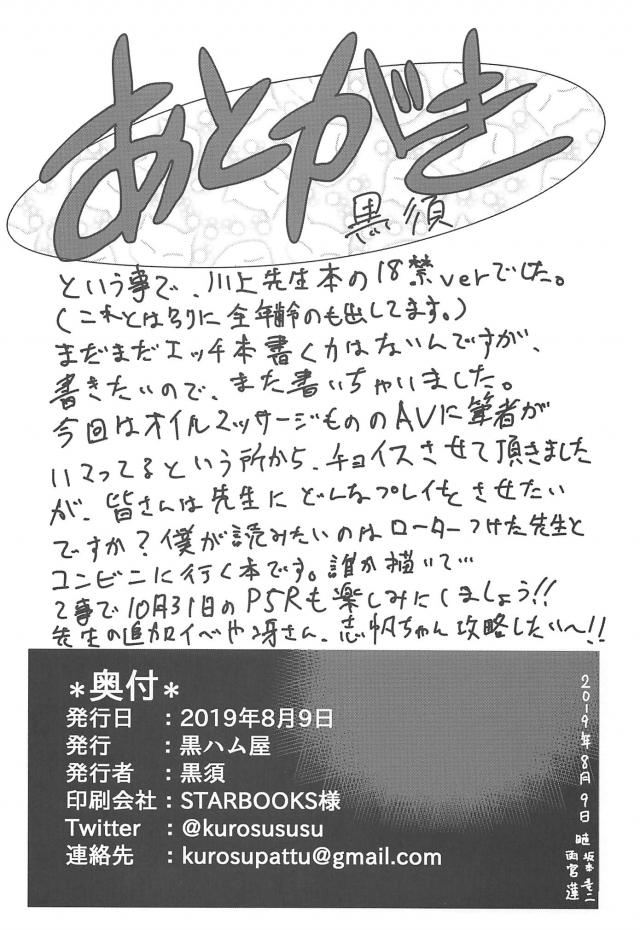 あとがき
黒須
という事で、川上先生本の18禁verでした。
(これとは別に全年齢のも出してます。)
まだまだエッチ本書く力はないんですが、
書きたいので、また書いちゃいました。
今回はオイルマッサージもののAVに筆者が
ハマってるという所から、チョイスさせて頂きました
が、皆さんは先生にどんなプレイをさせたい
ですか?僕が読みたいのはローターつけた先生と
コンビニに行く本です。誰か描いて…
て事で10月31日のP5Rも楽しみにしましょう!!
先生の追加イベや冴さん、志帆ちゃん攻略したいへ!!
*奥付*
発行日 :2019年8月9日
発行 :黒ハム屋
発行者 :黒須
印刷会社:STARBOOKS様
Twitter :@kurosususu
連絡先 :kurosupattu@gmail.com
2019年8月9日
坂本竜二
雨宮蓮